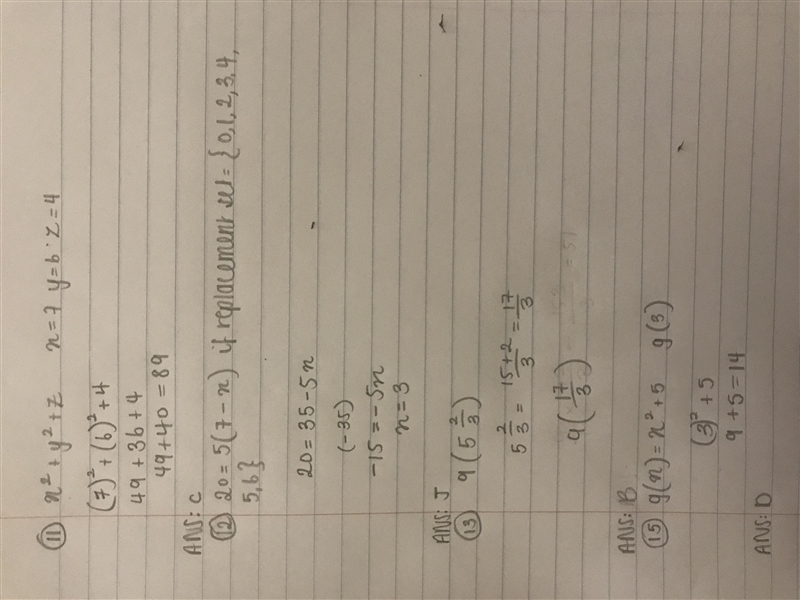 (11) x² + y² + z x = 7 y = 6 · z = 4
(7)² + (6)² + 4
49 + 36 + 4
49 + 40 = 89
ANS: C
(12) 20 = 5(7 - x) if replacement set = {0,1,2,3,4,
5,6}
20 = 35 - 5x
(-35)
-15 = -5x
x = 3
ANS: J
(13) 9(5 2/3)
5 2/3 = 15+2/3 = 17/3
9(17/3) = 51
ANS: B
(15) g(x) = x² + 5 g(3)
(3)² + 5
9 + 5 = 14
ANS: D